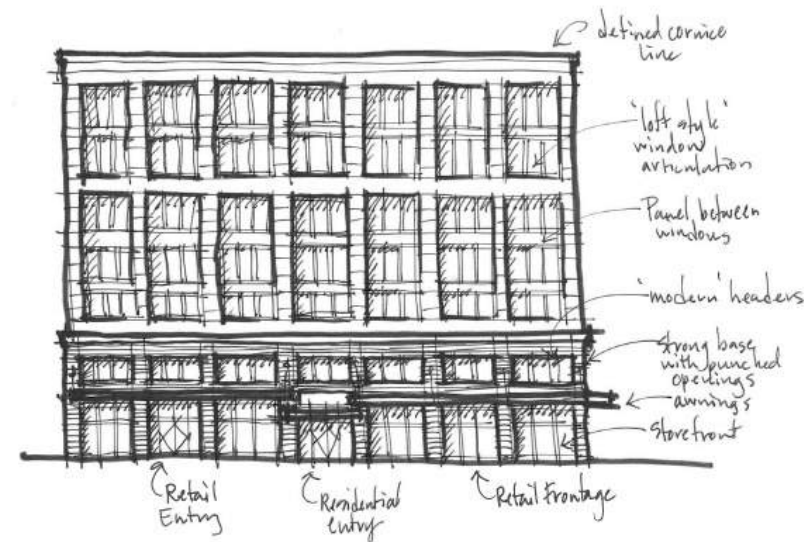 defined cornice
line
'loft style'
window
articulation
Panel between
windows
'modern' headers
strong base
with punched
openings
awnings
storefront
Retail
Entry
Residential
entry
Retail Frontage